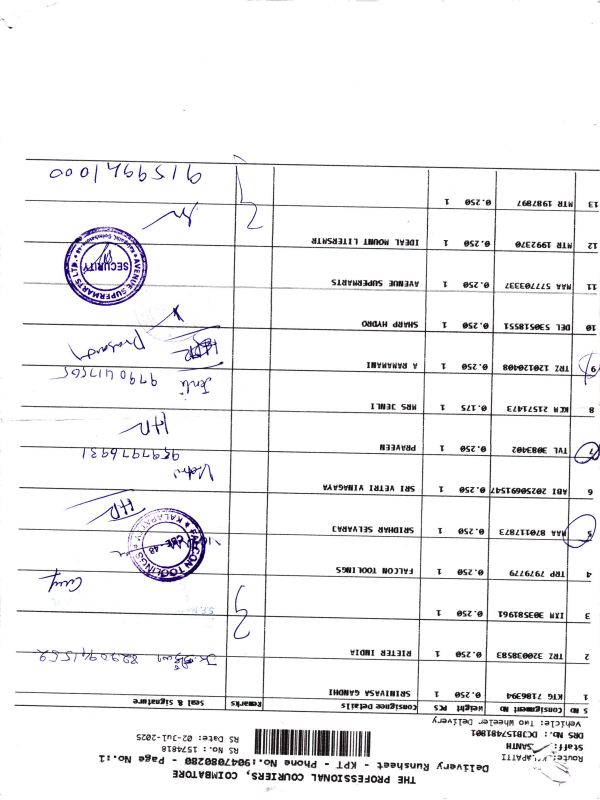 THE PROFESSIONAL COURIERS, COIMBATORE
Delivery Runsheet - KPT - Phone No.:9047080280 - Page No.:1
Staff: SANTH
DRS No.: DCJB15748180
RS No.: 1574818
Vehicle: Two Wheeler Delivery
RS Date: 02-Jul-2025
S No Consignment No Weight PCS Consignee Details Remarks Seal & Signature
1 KTG 7186394 0.250 1 SRINIVASA GANDHI
2 TRZ 320038583 0.250 1 RIETER INDIA 8220941552
3 IXM 303581961 0.250 1
4 TRP 7979779 0.250 1 FALCON TOOLINGS
FALCON TOOLINGS KALAPATTY CBE-48
5 MAA 870117873 0.250 1 SRIDHAR SELVARAJ
6 ABI 20250691547 0.250 1 SRI VETRI VINAGAYA
9597976931
7 TVL 3083402 0.250 1 PRAVEEN
8 KCM 21571473 0.175 1 MRS JENLI
Jenli 9790417565
9 TRZ 120120408 0.250 1 A RAMAMANI
Prasanth
10 DEL 530518551 0.250 1 SHARP HYDRO
11 MAA 577703337 0.250 1 AVENUE SUPERMARTS
AVENUE SUPERMARTS LTD. SECURITY
12 MTR 1992370 0.250 1 IDEAL MOUNT LITERSMTR
13 MTR 1987897 0.250 1
9159941000